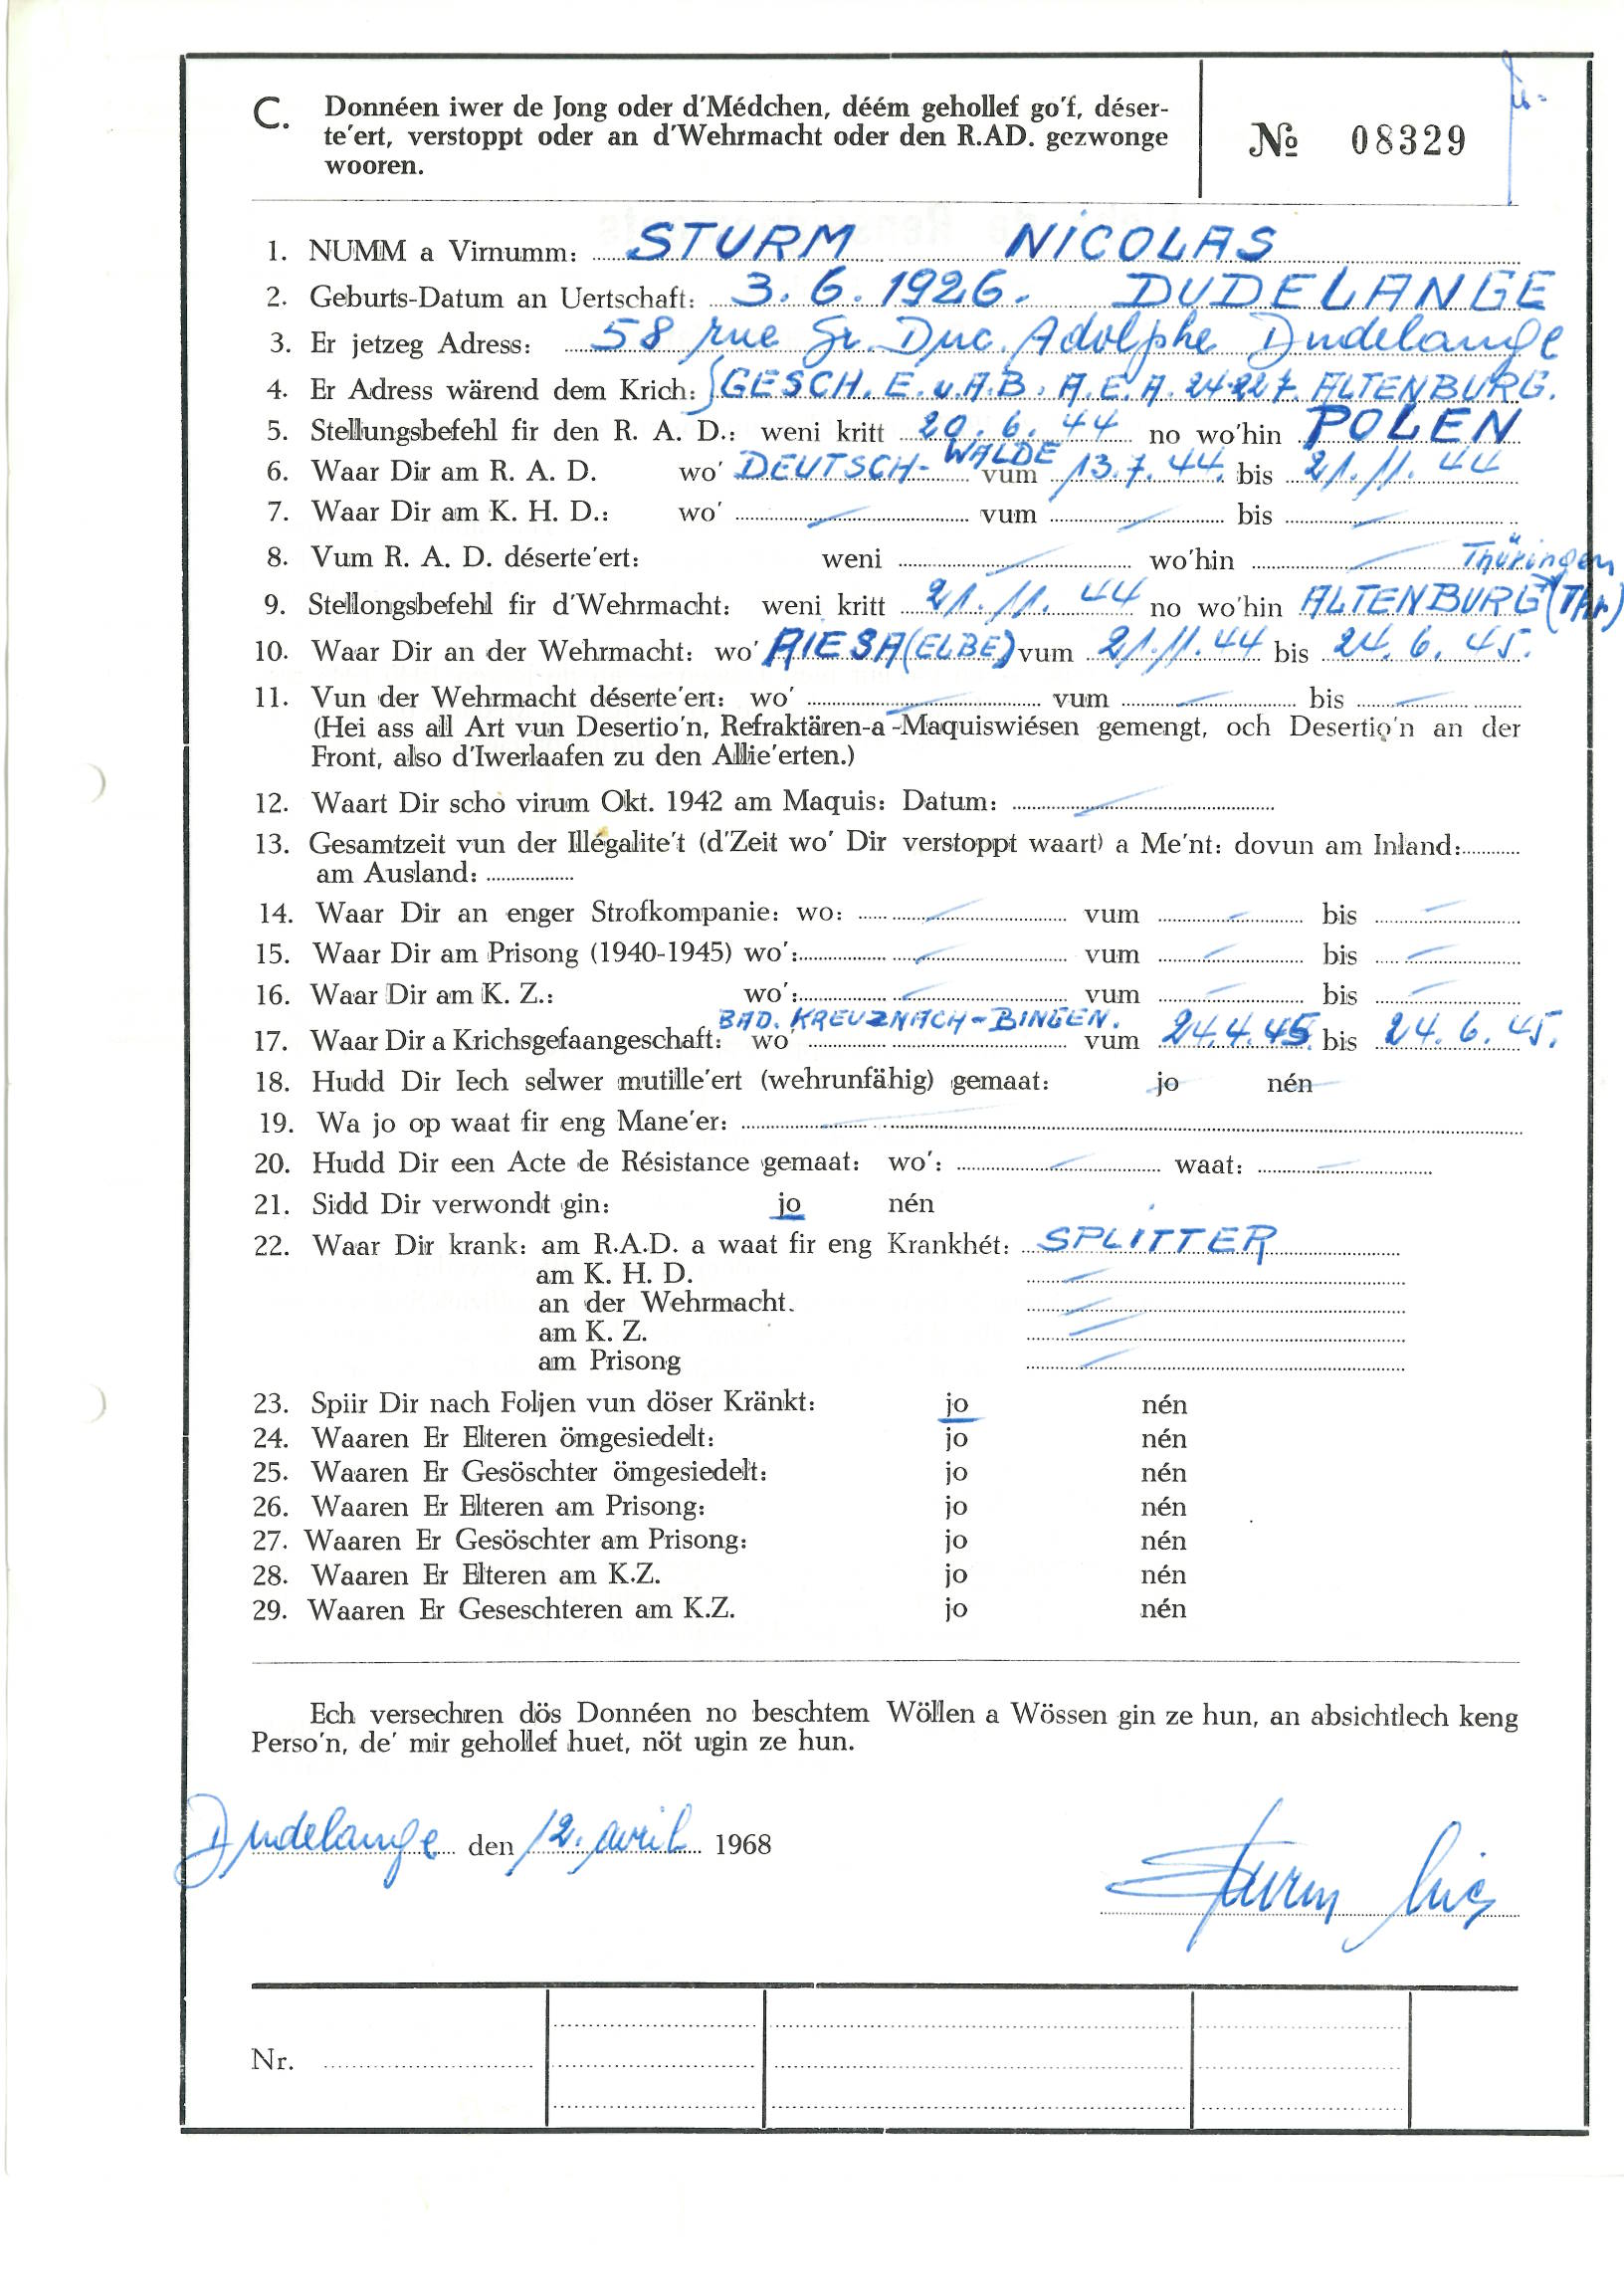 C. Donnéen iwer de Jong oder d'Médchen, déém gehollef go'f, déser-
te'ert, verstoppt oder an d'Wehrmacht oder den R.AD. gezwonge
wooren.
№ 08329
1. NUMM a Virnumm: STURM NICOLAS
2. Geburts-Datum an Uertschaft: 3.6.1926. DUDELANGE
3. Er jetzeg Adress: 58 rue Gr. Duc. Adolphe Dudelange
4. Er Adress wärend dem Krich: GESCH. E. u. A. B. A. E. A. 24 ALTENBURG.
5. Stellungsbefehl fir den R. A. D.: weni kritt 20.6.44 no wo'hin POLEN
6. Waar Dir am R. A. D. wo' DEUTSCH-WALDE vum 13.7.44. bis 21.11.44
7. Waar Dir am K. H. D.: wo' — vum — bis —
8. Vum R. A. D. déserte'ert: weni — wo'hin — Thüringen
9. Stellongsbefehl fir d'Wehrmacht: weni kritt 21.11.44 no wo'hin ALTENBURG (Thr)
10. Waar Dir an der Wehrmacht: wo' RIESA (ELBE) vum 21.11.44 bis 24.6.45.
11. Vun der Wehrmacht déserte'ert: wo' — vum — bis —
(Hei ass all Art vun Desertio'n, Refraktären-a-Maquiswiésen gemengt, och Desertio'n an der
Front, also d'Iwerlaafen zu den Allie'erten.)
12. Waart Dir scho virum Okt. 1942 am Maquis: Datum: —
13. Gesamtzeit vun der Illégalite't (d'Zeit wo' Dir verstoppt waart) a Me'nt: dovun am Inland:
am Ausland:
14. Waar Dir an enger Strofkompanie: wo: — vum — bis —
15. Waar Dir am Prisong (1940-1945) wo': — vum — bis —
16. Waar Dir am K. Z.: wo': — vum — bis —
17. Waar Dir a Krichsgefaangeschaft: wo' BAD. KREUZNACH-BINGEN. vum 24.4.45. bis 24.6.45.
18. Hudd Dir Iech selwer mutille'ert (wehrunfähig) gemaat: jo nén
19. Wa jo op waat fir eng Mane'er: —
20. Hudd Dir een Acte de Résistance gemaat: wo': — waat: —
21. Sidd Dir verwondt gin: jo nén
22. Waar Dir krank: am R.A.D. a waat fir eng Krankhét: SPLITTER
am K. H. D. —
an der Wehrmacht. —
am K. Z. —
am Prisong —
23. Spiir Dir nach Foljen vun döser Kränkt: jo nén
24. Waaren Er Elteren ömgesiedelt: jo nén
25. Waaren Er Gesöschter ömgesiedelt: jo nén
26. Waaren Er Elteren am Prisong: jo nén
27. Waaren Er Gesöschter am Prisong: jo nén
28. Waaren Er Elteren am K.Z. jo nén
29. Waaren Er Geseschteren am K.Z. jo nén
Ech versechren dös Donnéen no beschtem Wöllen a Wössen gin ze hun, an absichtlech keng
Perso'n, de' mir gehollef huet, nöt ugin ze hun.
Dudelange den 12. avril 1968
Sturm Nic
Nr.